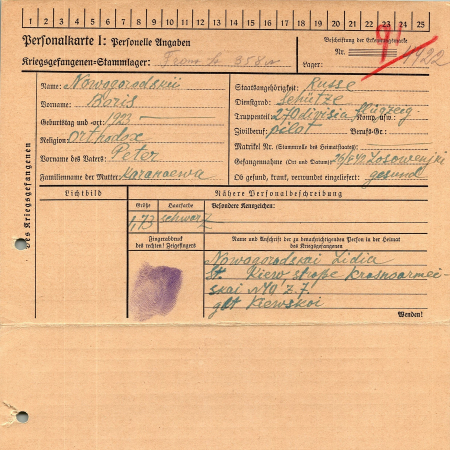 1 2 3 4 5 6 7 8 9 10 11 12 13 14 15 16 17 18 19 20 21 22 23 24 25
Personalkarte I: Personelle Angaben
Kriegsgefangenen-Stammlager: 358
Beschriftung der Erkennungsmarke
Nr. 1922
Lager:
Des Kriegsgefangenen
Name: Nowogorodskii
Vorname: Boris
Geburtstag und -ort: 1923 —
Religion: Orthodox
Vorname des Vaters: Peter
Familienname der Mutter:
Staatsangehörigkeit: Russe
Dienstgrad: Schütze
Truppenteil: 270 divisia flugzeig Komp. usw.:
Zivilberuf: pilot Berufs-Gr.:
Matrikel Nr. (Stammrolle des Heimatstaates):
Gefangennahme (Ort und Datum): Losowenjki
Ob gesund, krank, verwundet eingeliefert: gesund
Lichtbild
Nähere Personalbeschreibung
Größe Haarfarbe Besondere Kennzeichen:
1,73 schwarz
Fingerabdruck
des rechten! Zeigefingers
Name und Anschrift der zu benachrichtigenden Person in der Heimat
des Kriegsgefangenen
Nowagorodskai Lidia
St. Kiew straße krasnoarmei-
skai N9 z. 7.
gbt Kiewskoi
Wenden!